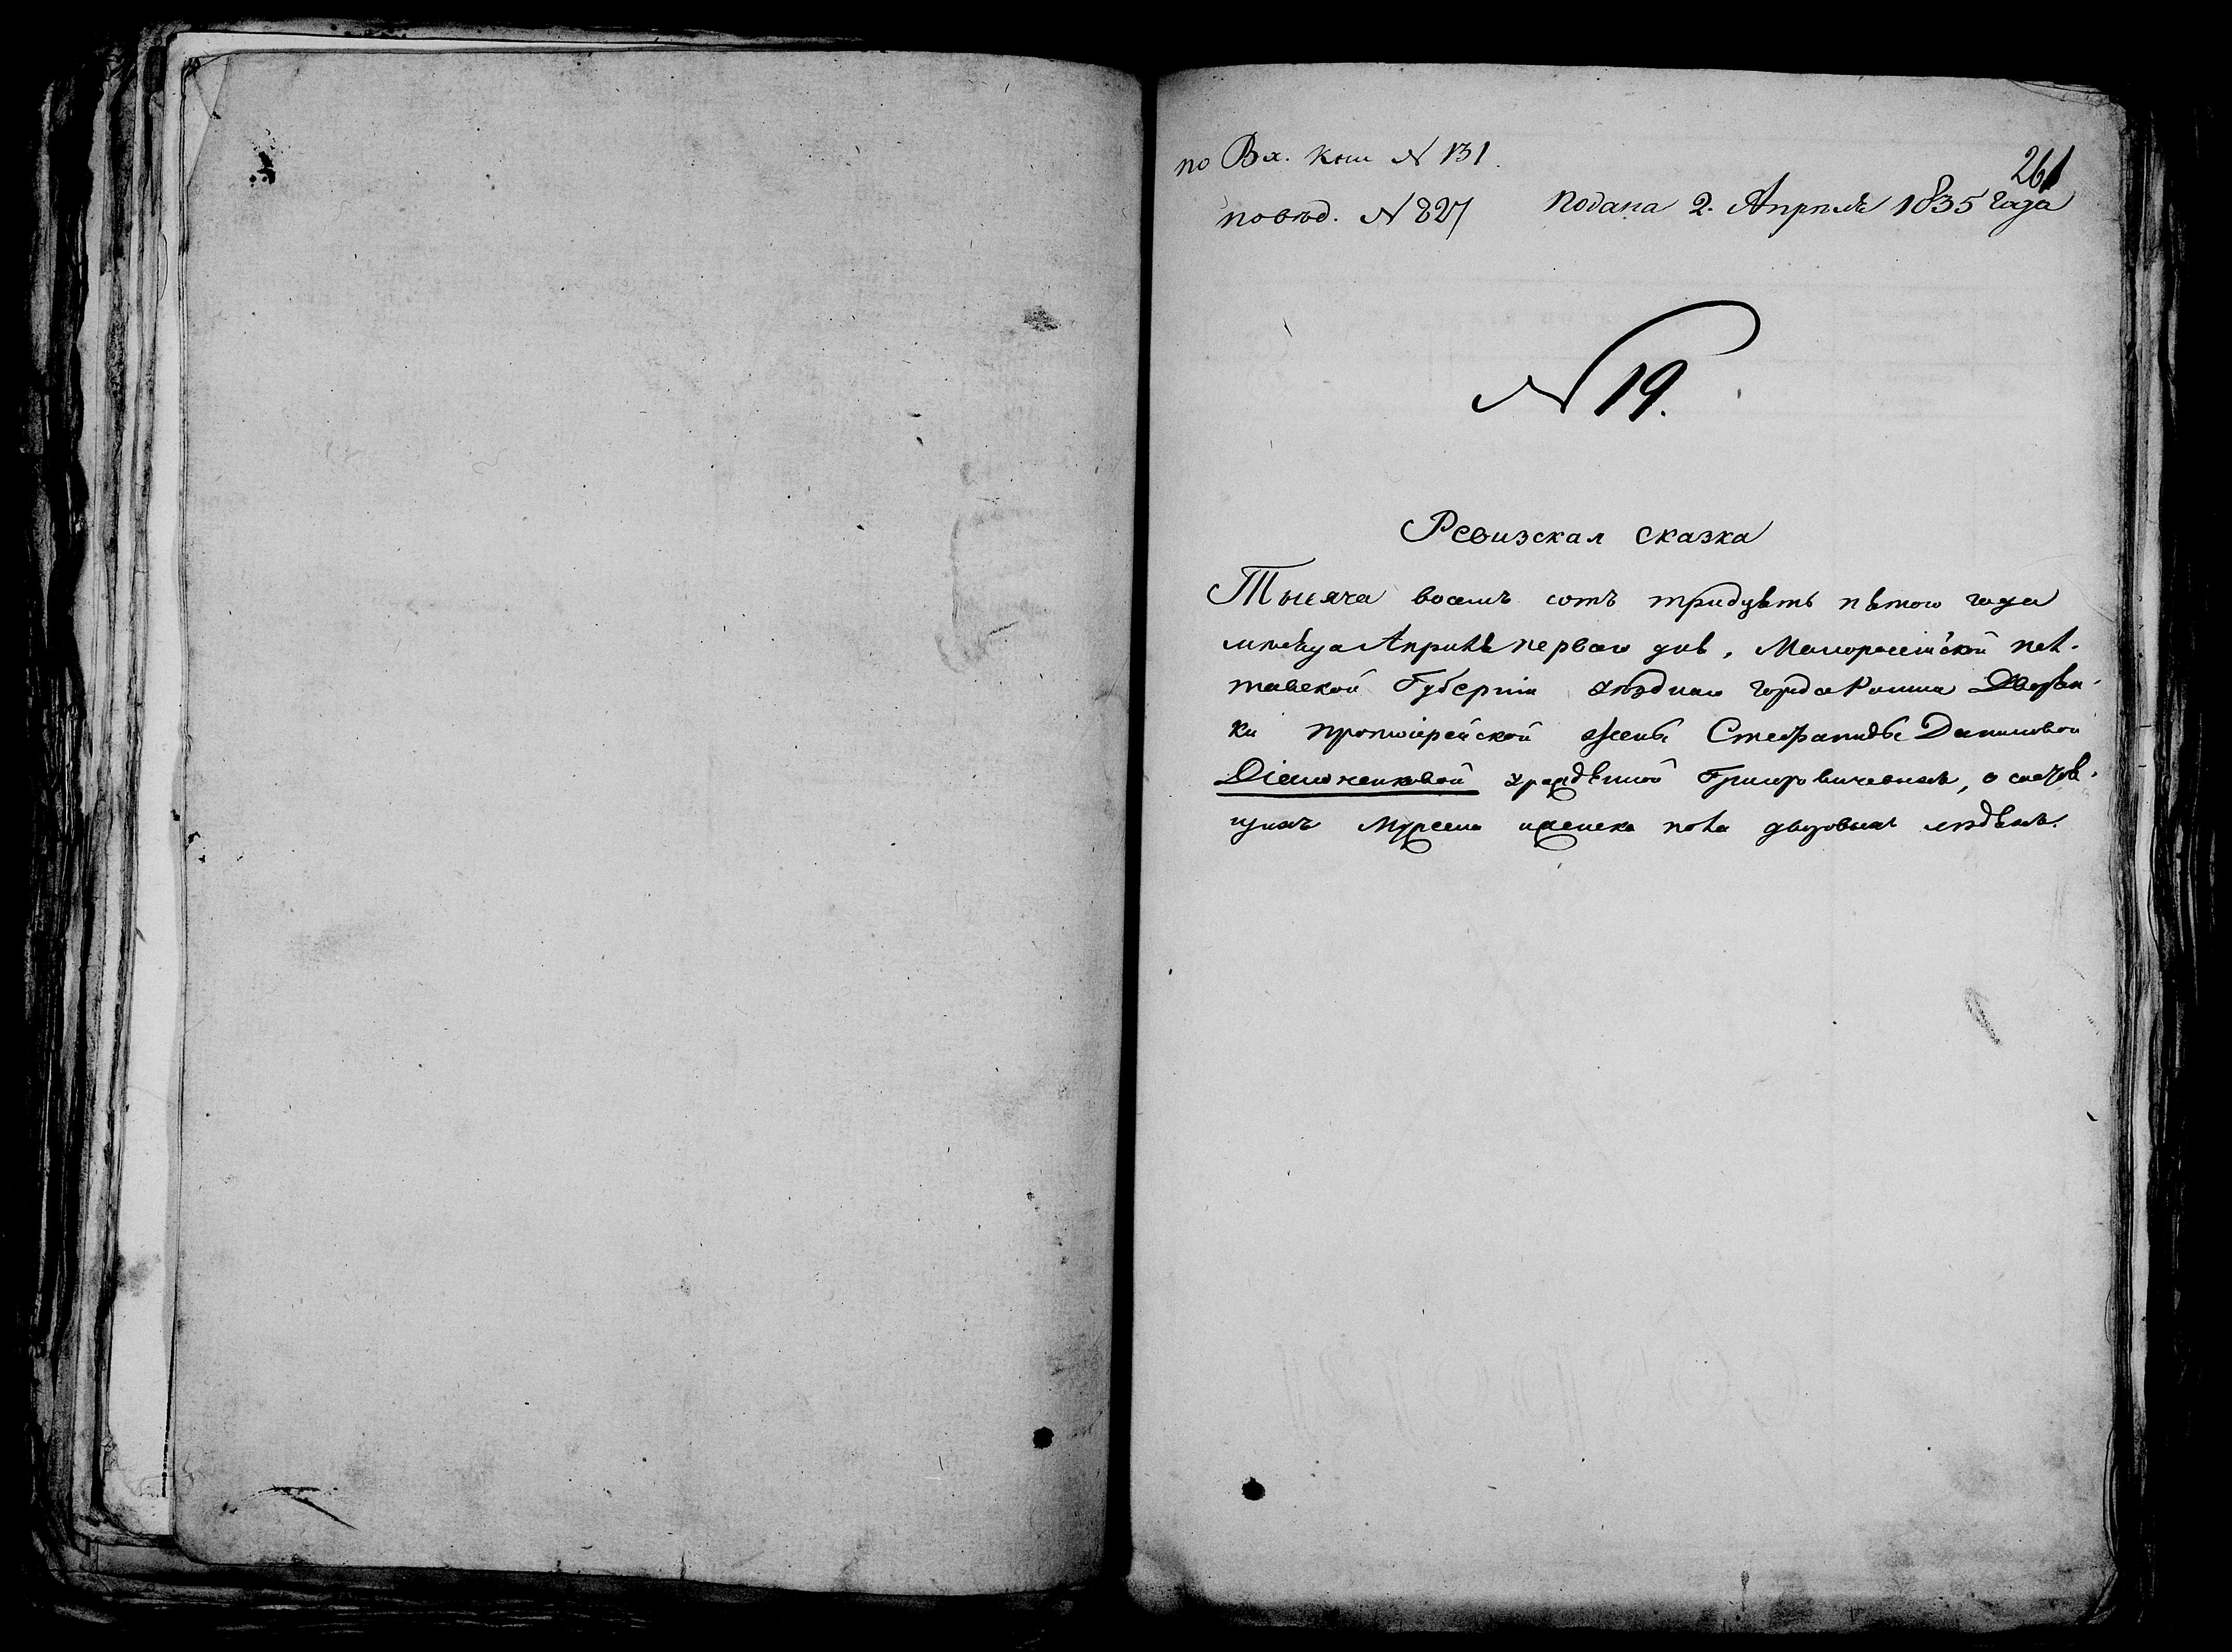 по Вх. кни N 131.
261
N 827 подана 2. Апреля 1835 года
N 19.
Ревизская сказка
Тысяча восемь сотъ тридцять пятого года
мѣсяца Апрѣля первого дня, Малороссійской пол-
тавской Губерніи уѣзднаго города Дворян-
ки протоіерейской жены Стефаниды Даниловой
урожденной Григоровичевны, о состоя-
щихъ мужеска и женска пола дворовыхъ людяхъ.